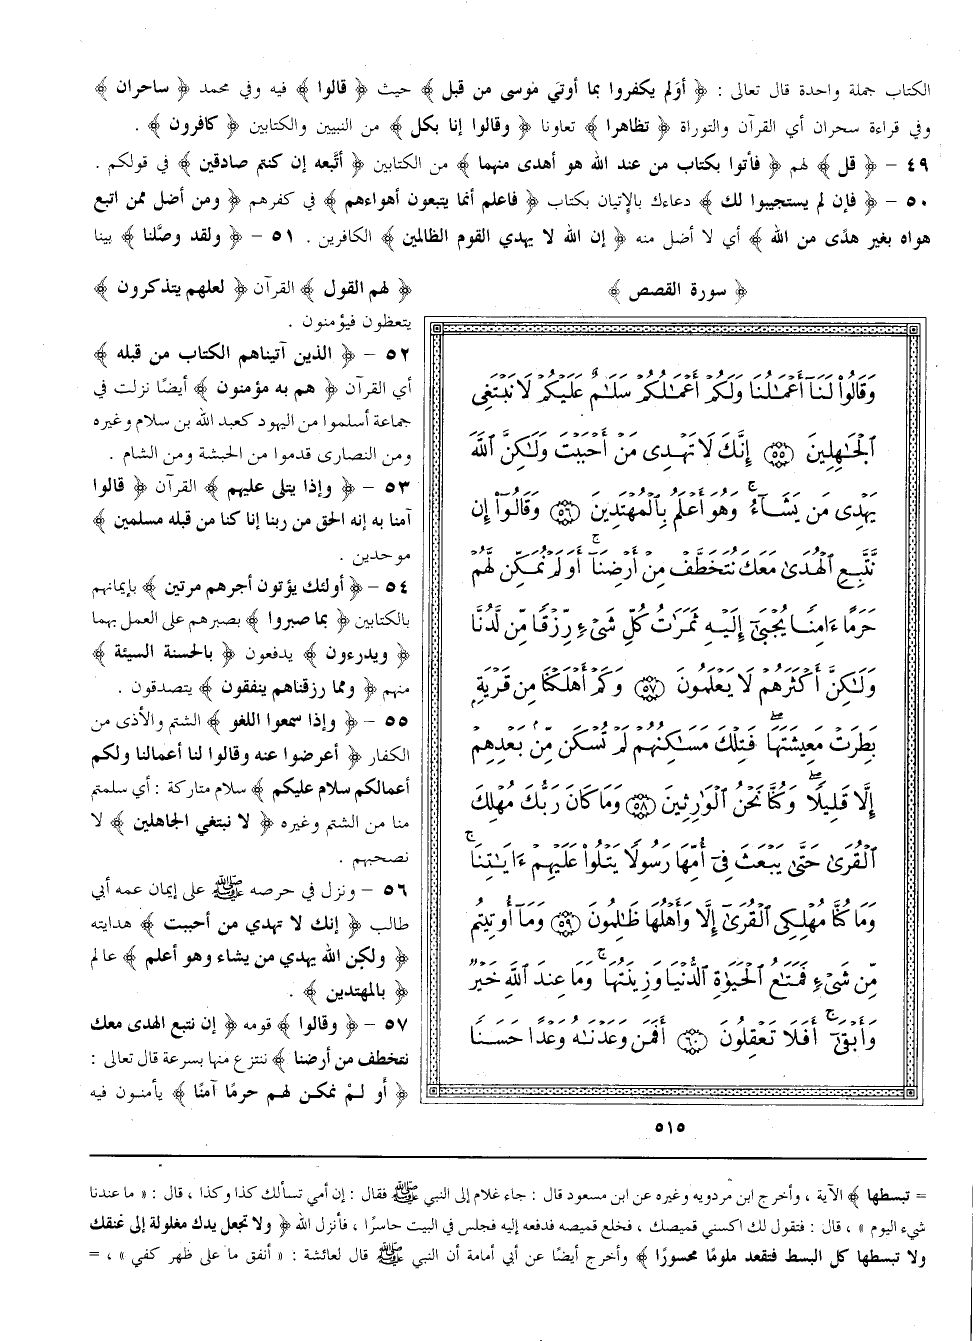 الكتاب جملة واحدة قال تعالى : ﴿ أوَلم يكفروا بما أوتيَ موسى من قبل ﴾ حيث ﴿ قالوا ﴾ فيه وفي محمد ﴿ ساحران ﴾
وفي قراءة سحران أي القرآن والتوراة ﴿ تظاهرا ﴾ تعاونا ﴿ وقالوا إنا بكل ﴾ من النبيين والكتابين ﴿ كافرون ﴾ .
٤٩ – ﴿ قل ﴾ لهم ﴿ فأتوا بكتاب من عند الله هو أهدى منهما ﴾ من الكتابين ﴿ أتَّبعه إن كنتم صادقين ﴾ في قولكم .
٥٠ – ﴿ فإن لم يستجيبوا لك ﴾ دعاءك بالإتيان بكتاب ﴿ فاعلم أنما يتبعون أهواءهم ﴾ في كفرهم ﴿ ومن أضل ممن اتبع
هواه بغير هدًى من الله ﴾ أي لا أضل منه ﴿ إن الله لا يهدي القوم الظالمين ﴾ الكافرين . ٥١ – ﴿ ولقد وصَّلنا ﴾ بينا
﴿ سورة القصص ﴾
وَقَالُوا۟ لَنَآ أَعْمَـٰلُنَا وَلَكُمْ أَعْمَـٰلُكُمْ سَلَـٰمٌ عَلَيْكُمْ لَا نَبْتَغِى
ٱلْجَـٰهِلِينَ ٥٥ إِنَّكَ لَا تَهْدِى مَنْ أَحْبَبْتَ وَلَـٰكِنَّ ٱللَّهَ
يَهْدِى مَن يَشَآءُ ۚ وَهُوَ أَعْلَمُ بِٱلْمُهْتَدِينَ ٥٦ وَقَالُوٓا۟ إِن
نَّتَّبِعِ ٱلْهُدَىٰ مَعَكَ نُتَخَطَّفْ مِنْ أَرْضِنَآ ۚ أَوَلَمْ نُمَكِّن لَّهُمْ
حَرَمًا ءَامِنًا يُجْبَىٰٓ إِلَيْهِ ثَمَرَٰتُ كُلِّ شَىْءٍ رِّزْقًا مِّن لَّدُنَّا
وَلَـٰكِنَّ أَكْثَرَهُمْ لَا يَعْلَمُونَ ٥٧ وَكَمْ أَهْلَكْنَا مِن قَرْيَةٍۭ
بَطِرَتْ مَعِيشَتَهَا ۖ فَتِلْكَ مَسَـٰكِنُهُمْ لَمْ تُسْكَن مِّنۢ بَعْدِهِمْ
إِلَّا قَلِيلًا ۖ وَكُنَّا نَحْنُ ٱلْوَٰرِثِينَ ٥٨ وَمَا كَانَ رَبُّكَ مُهْلِكَ
ٱلْقُرَىٰ حَتَّىٰ يَبْعَثَ فِىٓ أُمِّهَا رَسُولًا يَتْلُوا۟ عَلَيْهِمْ ءَايَـٰتِنَا ۚ
وَمَا كُنَّا مُهْلِكِى ٱلْقُرَىٰٓ إِلَّا وَأَهْلُهَا ظَـٰلِمُونَ ٥٩ وَمَآ أُوتِيتُم
مِّن شَىْءٍ فَمَتَـٰعُ ٱلْحَيَوٰةِ ٱلدُّنْيَا وَزِينَتُهَا ۚ وَمَا عِندَ ٱللَّهِ خَيْرٌ
وَأَبْقَىٰٓ ۚ أَفَلَا تَعْقِلُونَ ٦٠ أَفَمَن وَعَدْنَـٰهُ وَعْدًا حَسَنًا
٥١٥
﴿ لهم القول ﴾ القرآن ﴿ لعلهم يتذكرون ﴾
يتعظون فيؤمنون .
٥٢ – ﴿ الذين آتيناهم الكتاب من قبله ﴾
أي القرآن ﴿ هم به مؤمنون ﴾ أيضًا نزلت في
جماعة أسلموا من اليهود كعبد الله بن سلام وغيره
ومن النصارى قدموا من الحبشة ومن الشام .
٥٣ – ﴿ وإذا يتلى عليهم ﴾ القرآن ﴿ قالوا
آمنا به إنه الحق من ربنا إنا كنا من قبله مسلمين ﴾
موحدين .
٥٤ – ﴿ أولئك يؤتون أجرهم مرتين ﴾ بإيمانهم
بالكتابين ﴿ بما صبروا ﴾ بصبرهم على العمل بهما
﴿ ويدرءون ﴾ يدفعون ﴿ بالحسنة السيئة ﴾
منهم ﴿ ومما رزقناهم ينفقون ﴾ يتصدقون .
٥٥ – ﴿ وإذا سمعوا اللغو ﴾ الشتم والأذى من
الكفار ﴿ أعرضوا عنه وقالوا لنا أعمالنا ولكم
أعمالكم سلام عليكم ﴾ سلام متاركة : أي سلمتم
منا من الشتم وغيره ﴿ لا نبتغي الجاهلين ﴾ لا
نصحبهم .
٥٦ – ونزل في حرصه ﷺ على إيمان عمه أبي
طالب ﴿ إنك لا تهدي من أحببت ﴾ هدايته
﴿ ولكن الله يهدي من يشاء وهو أعلم ﴾ عالم
﴿ بالمهتدين ﴾ .
٥٧ – ﴿ وقالوا ﴾ قومه ﴿ إن نتبع الهدى معك
نتخطف من أرضنا ﴾ ننتزع منها بسرعة قال تعالى :
﴿ أو لمْ نمكن لهم حرمًا آمنًا ﴾ يأمنون فيه
= تبسطها ﴾ الآية ، وأخرج ابن مردويه وغيره عن ابن مسعود قال : جاء غلام إلى النبي ﷺ فقال : إن أمي تسألك كذا وكذا ، قال : « ما عندنا
شيء اليوم » ، قال : فتقول لك اكسني قميصك ، فخلع قميصه فدفعه إليه فجلس في البيت حاسرًا ، فأنزل الله ﴿ ولا تجعل يدك مغلولة إلى عنقك
ولا تبسطها كل البسط فتقعد ملومًا محسورًا ﴾ وأخرج أيضًا عن أبي أمامة أن النبي ﷺ قال لعائشة : « أنفق ما على ظهر كفي » ، =